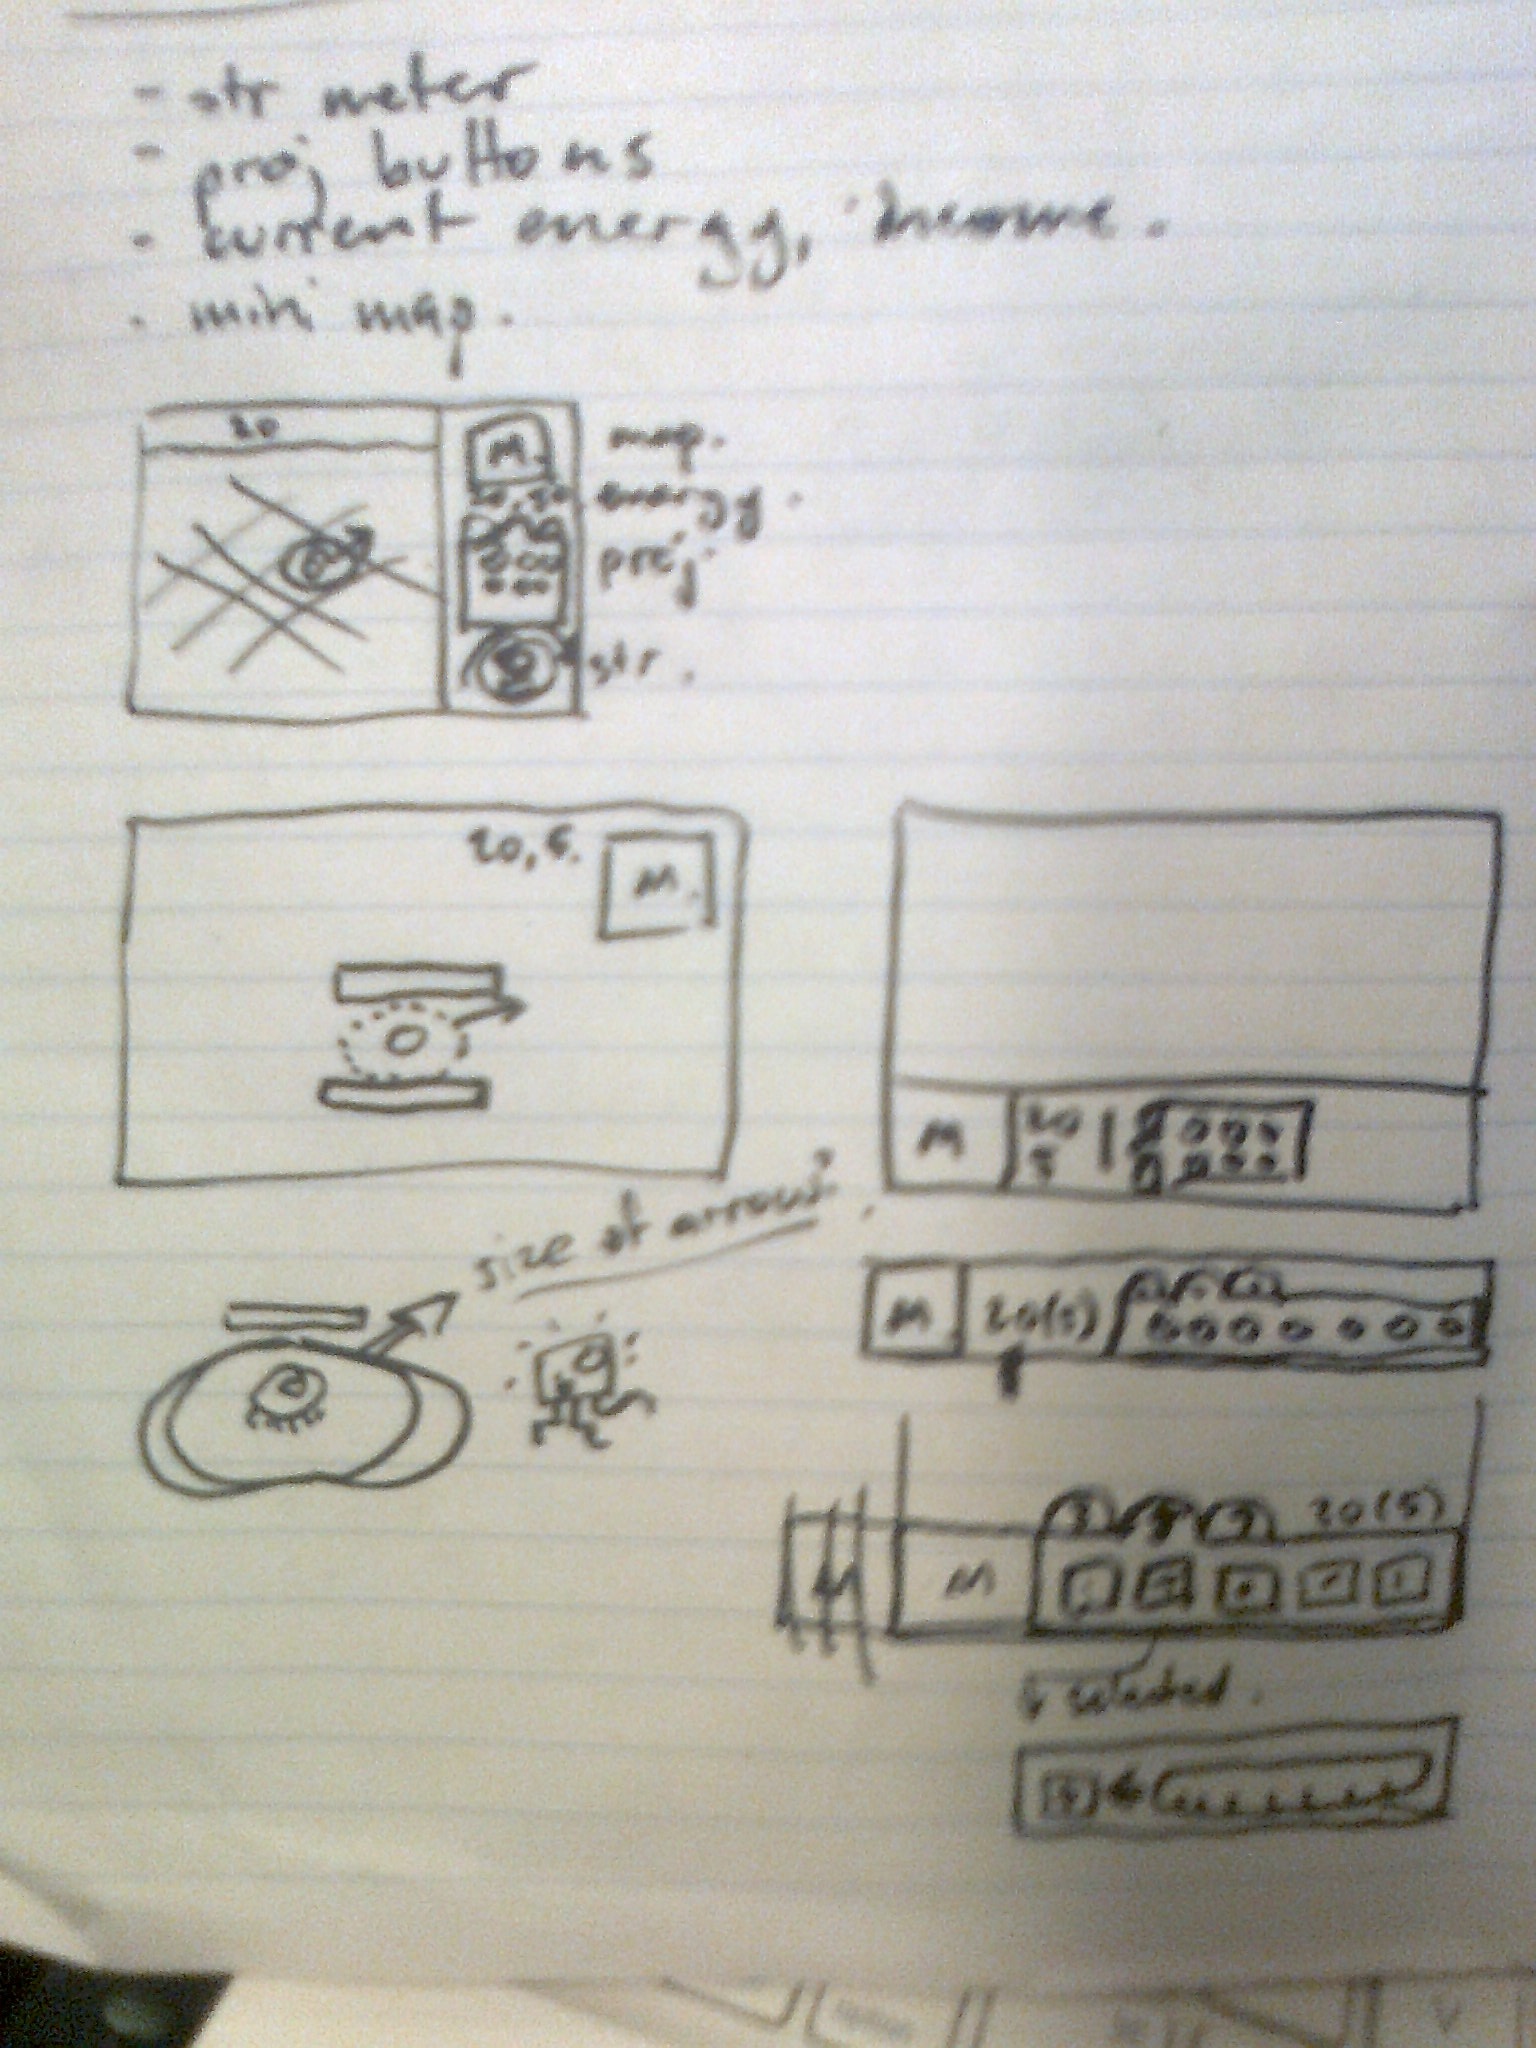 - str meter
- proj buttons
- current energy, income.
- mini map.
20
M.
map.
energy.
proj
str.
20, 5.
M.
M
20
5
size of arrow?
M
20(5)
20(5)
M
M
selected.